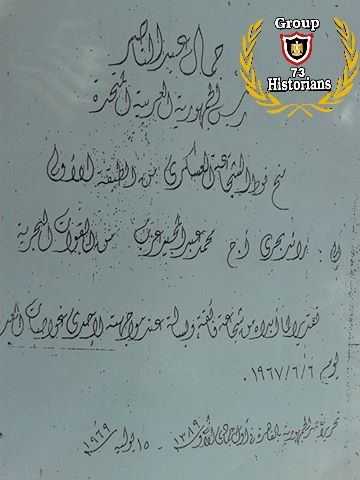 Group
73
Historians
جمال عبد الناصر
رئيس الجمهورية العربية المتحدة
منح نوط الشجاعة العسكرى من الطبقة الأولى
إلى : رائد بحرى أ.ح محمد عبد المجيد عزب من القوات البحرية
تقديراً لما أبداه من شجاعة فائقة وبسالة عند مواجهته لإحدى غواصات
يوم ٦/٦/١٩٦٧.
تحريراً بقصر الجمهورية بالقاهرة فى أول جمادى الأولى ١٣٨٩ - ١٥ يوليه ١٩٦٩